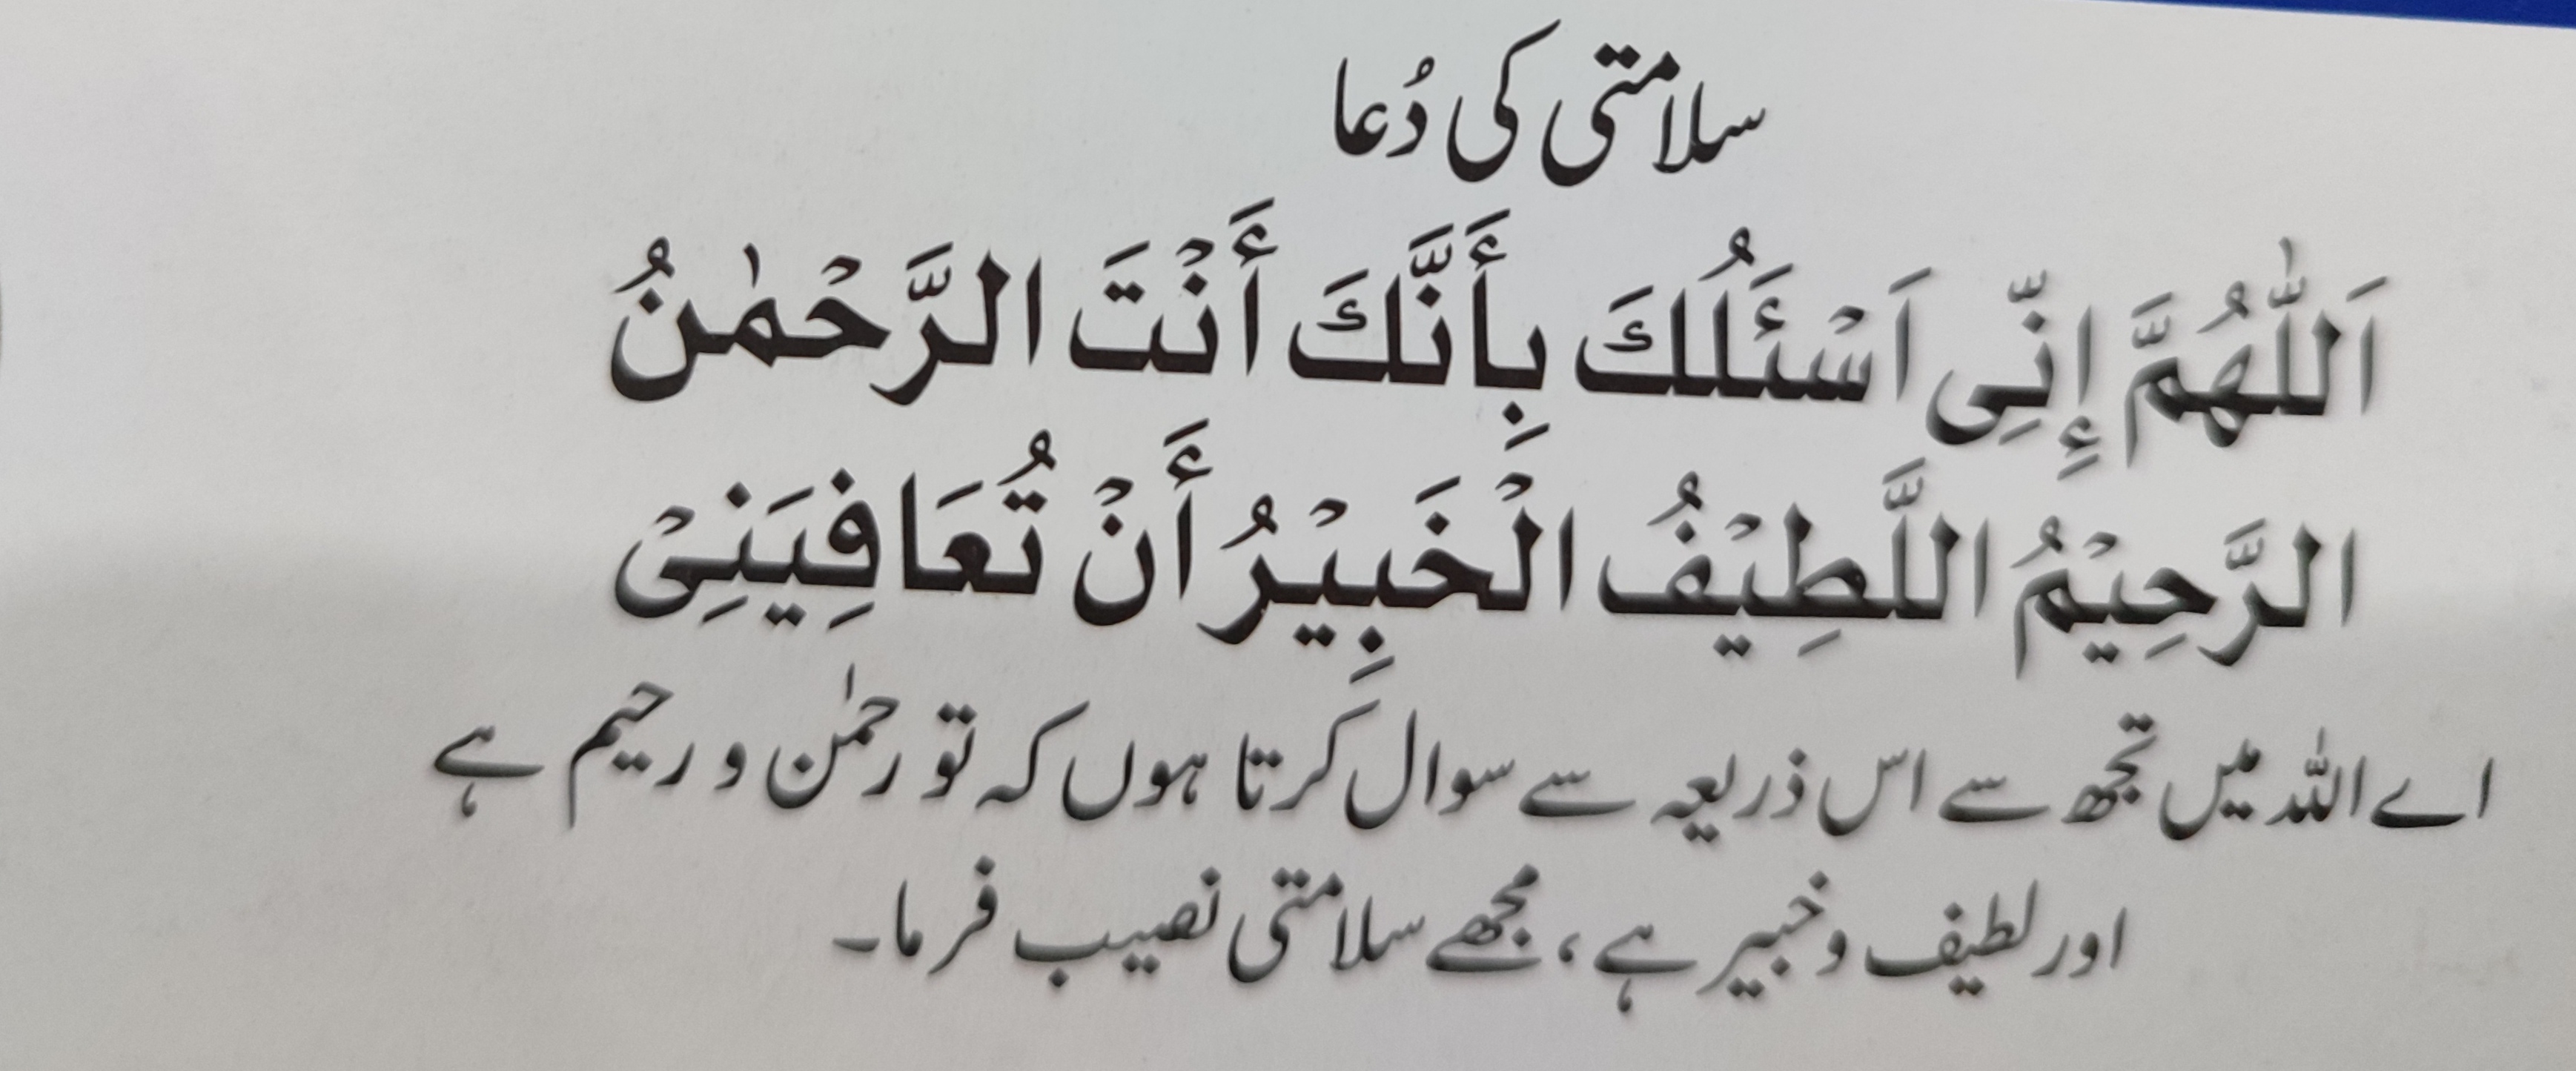 سلامتی کی دُعا
اَللّٰهُمَّ إِنِّی اَسْئَلُكَ بِأَنَّكَ أَنْتَ الرَّحْمٰنُ
الرَّحِیْمُ اللَّطِیْفُ الْخَبِیْرُ أَنْ تُعَافِیَنِیْ
اے اللہ میں تجھ سے اس ذریعہ سے سوال کرتا ہوں کہ تو رحمٰن و رحیم ہے
اور لطیف و خبیر ہے، مجھے سلامتی نصیب فرما۔